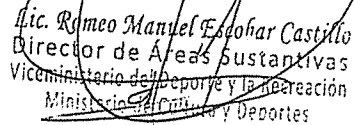 Lic. Romeo Manuel Escobar Castillo
Director de Áreas Sustantivas
Viceministerio del Deporte y la Recreación
Ministerio de Cultura y Deportes